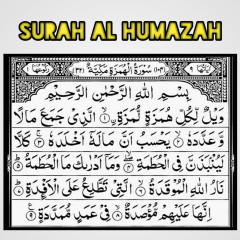 SURAH AL HUMAZAH
سُوْرَةُ الْهُمَزَةِ مَكِّيَّةٌ
بِسْمِ اللّٰهِ الرَّحْمٰنِ الرَّحِيْمِ
وَيْلٌ لِّكُلِّ هُمَزَةٍ لُّمَزَةٍ ۙ۝۱ الَّذِيْ جَمَعَ مَالًا
وَّ عَدَّدَهٗ ۙ۝۲ يَحْسَبُ اَنَّ مَالَهٗۤ اَخْلَدَهٗ ۚ۝۳ كَلَّا
لَيُنْۢبَذَنَّ فِي الْحُطَمَةِ ۖ۝۴ وَمَاۤ اَدْرٰىكَ مَا الْحُطَمَةُ ؕ۝۵
نَارُ اللّٰهِ الْمُوْقَدَةُ ۙ۝۶ الَّتِيْ تَطَّلِعُ عَلَى الْاَفْـِٕدَةِ ؕ۝۷
اِنَّهَا عَلَيْهِمْ مُّؤْصَدَةٌ ۙ۝۸ فِيْ عَمَدٍ مُّمَدَّدَةٍ ۝۹